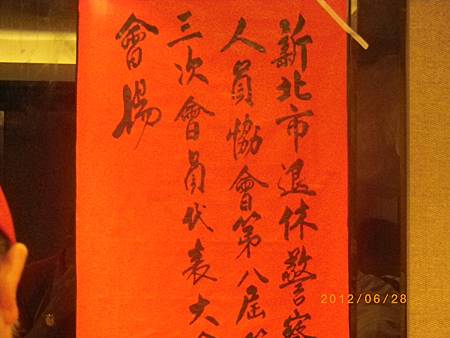 新北市退休警察
人員協會第八屆第
三次會員代表大會
會場
2012/06/28